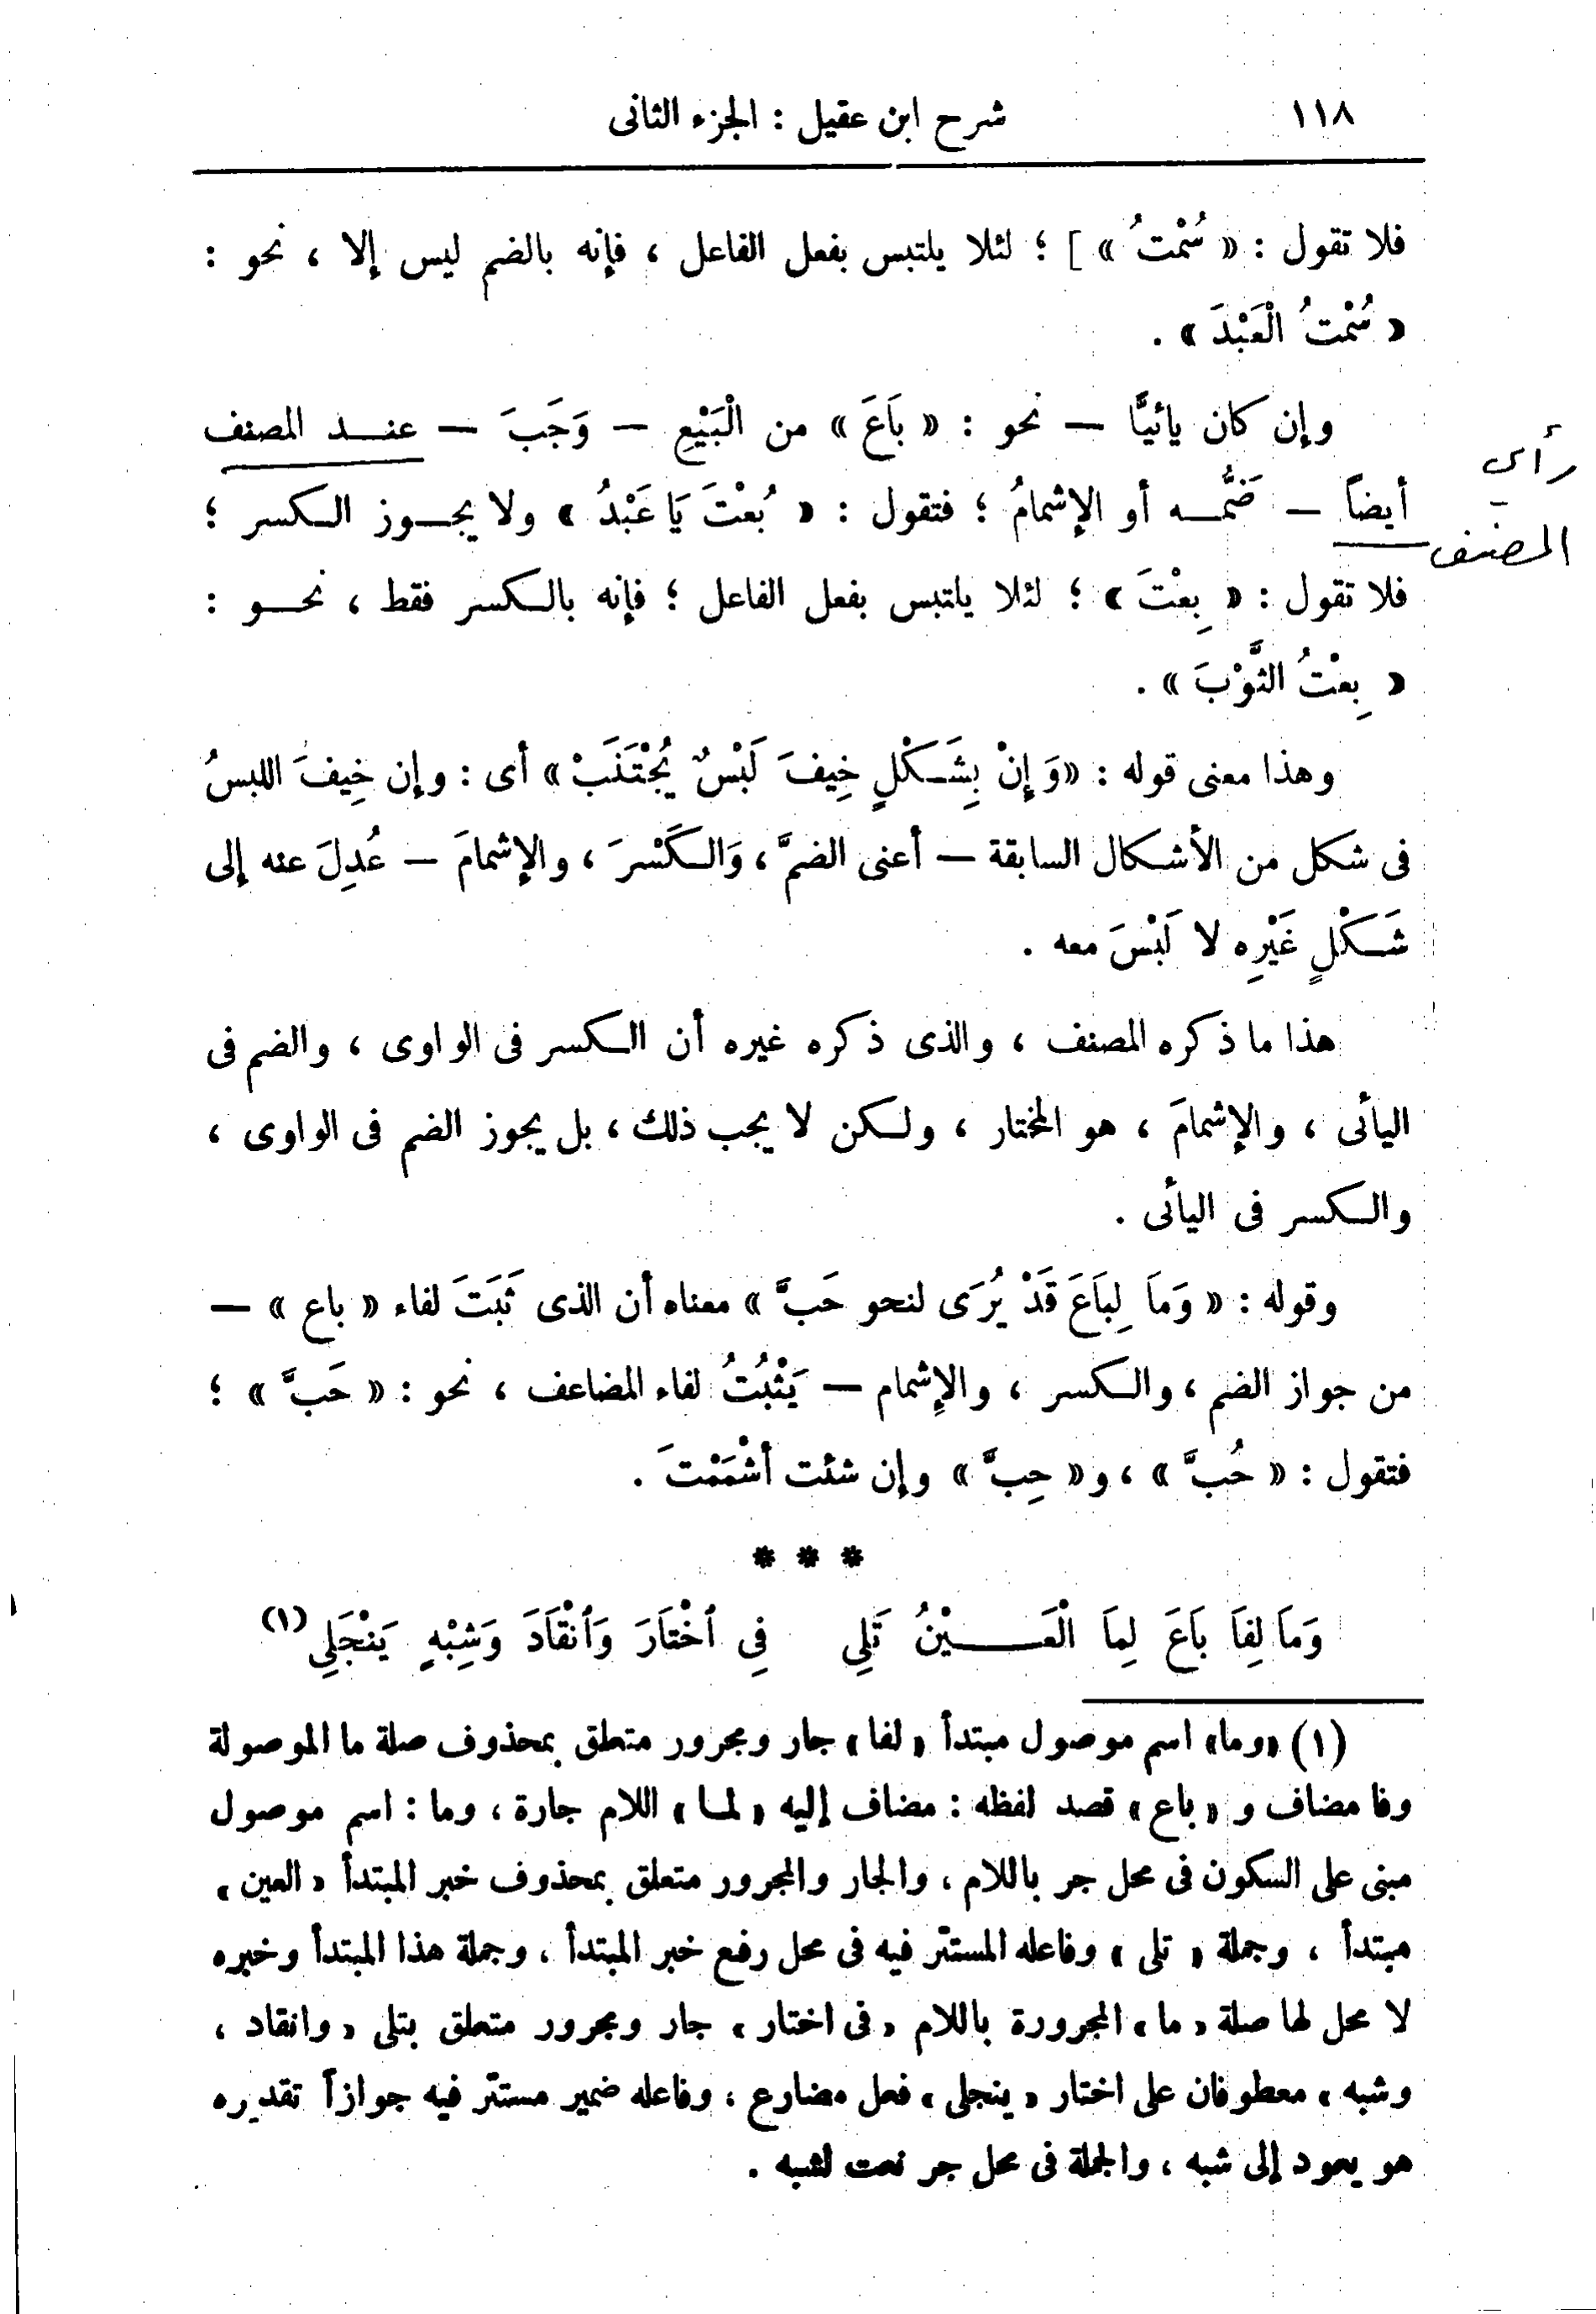 ١١٨
شرح ابن عقيل : الجزء الثانى
فلا تقول : « سُمْتُ » ] ؛ لئلا يلتبس بفعل الفاعل ، فإنه بالضم ليس إلا ، نحو :
« سُمْتُ الْعَبْدَ » .
وإن كان يائيًّا — نحو : « بَاعَ » من الْبَيْعِ — وَجَبَ — عنـــد المصنف
أيضاً — ضَمُّـــه أو الإشمامُ ؛ فتقول : « بُعْتَ يَا عَبْدُ » ولا يجـــوز الـكسر ؛
فلا تقول : « بِعْتَ » ؛ لئلا يلتبس بفعل الفاعل ؛ فإنه بالـكسر فقط ، نحـــو :
« بِعْتُ الثَّوْبَ » .
رأي
المصنف
وهذا معنى قوله : « وَإِنْ بِشَـكْلٍ خِيفَ لَبْسٌ يُجْتَنَبْ » أى : وإن خِيفَ اللبسُ
فى شكل من الأشـكال السابقة — أعنى الضمَّ ، وَالـكَسْرَ ، والإشمامَ — عُدِلَ عنه إلى
شَـكْلٍ غَيْرِه لا لَبْسَ معه .
هذا ما ذكره المصنف ، والذى ذكره غيره أن الـكسر فى الواوى ، والضم فى
اليائى ، والإشمامَ ، هو المختار ، ولـكن لا يجب ذلك ، بل يجوز الضم فى الواوى ،
والـكسر فى اليائى .
وقوله : « وَمَا لِبَاعَ قَدْ يُرَى لنحو حَبَّ » معناه أن الذى ثَبَتَ لفاء « باع » —
من جواز الضم ، والـكسر ، والإشمام — يَثْبُتُ لفاء المضاعف ، نحو : « حَبَّ » ؛
فتقول : « حُبَّ » ، و « حِبَّ » وإن شئت أشْمَمْتَ .
* * *
وَمَا لِفَا بَاعَ لِمَا الْعَـــــيْنُ تَلِى فِى ٱخْتَارَ وَٱنْقَادَ وَشِبْهٍ يَنْجَلِى (١)
(١) «وما» اسم موصول مبتدأ « لفا » جار ومجرور متعلق بمحذوف صلة ما الموصولة
وفا مضاف و « باع » قصد لفظه : مضاف إليه « لمـا » اللام جارة ، وما : اسم موصول
مبنى على السكون فى محل جر باللام ، والجار والمجرور متعلق بمحذوف خبر المبتدأ « العين »
مبتدأ ، وجملة « تلى » وفاعله المستتر فيه فى محل رفع خبر المبتدأ ، وجملة هذا المبتدأ وخبره
لا محل لها صلة « ما » المجرورة باللام « فى اختار » جار ومجرور متعلق بتلى « وانقاد ،
وشبه » معطوفان على اختار « ينجلى » فعل مضارع ، وفاعله ضمير مستتر فيه جوازاً تقديره
هو يعود إلى شبه ، والجملة فى محل جر نعت لشبه .